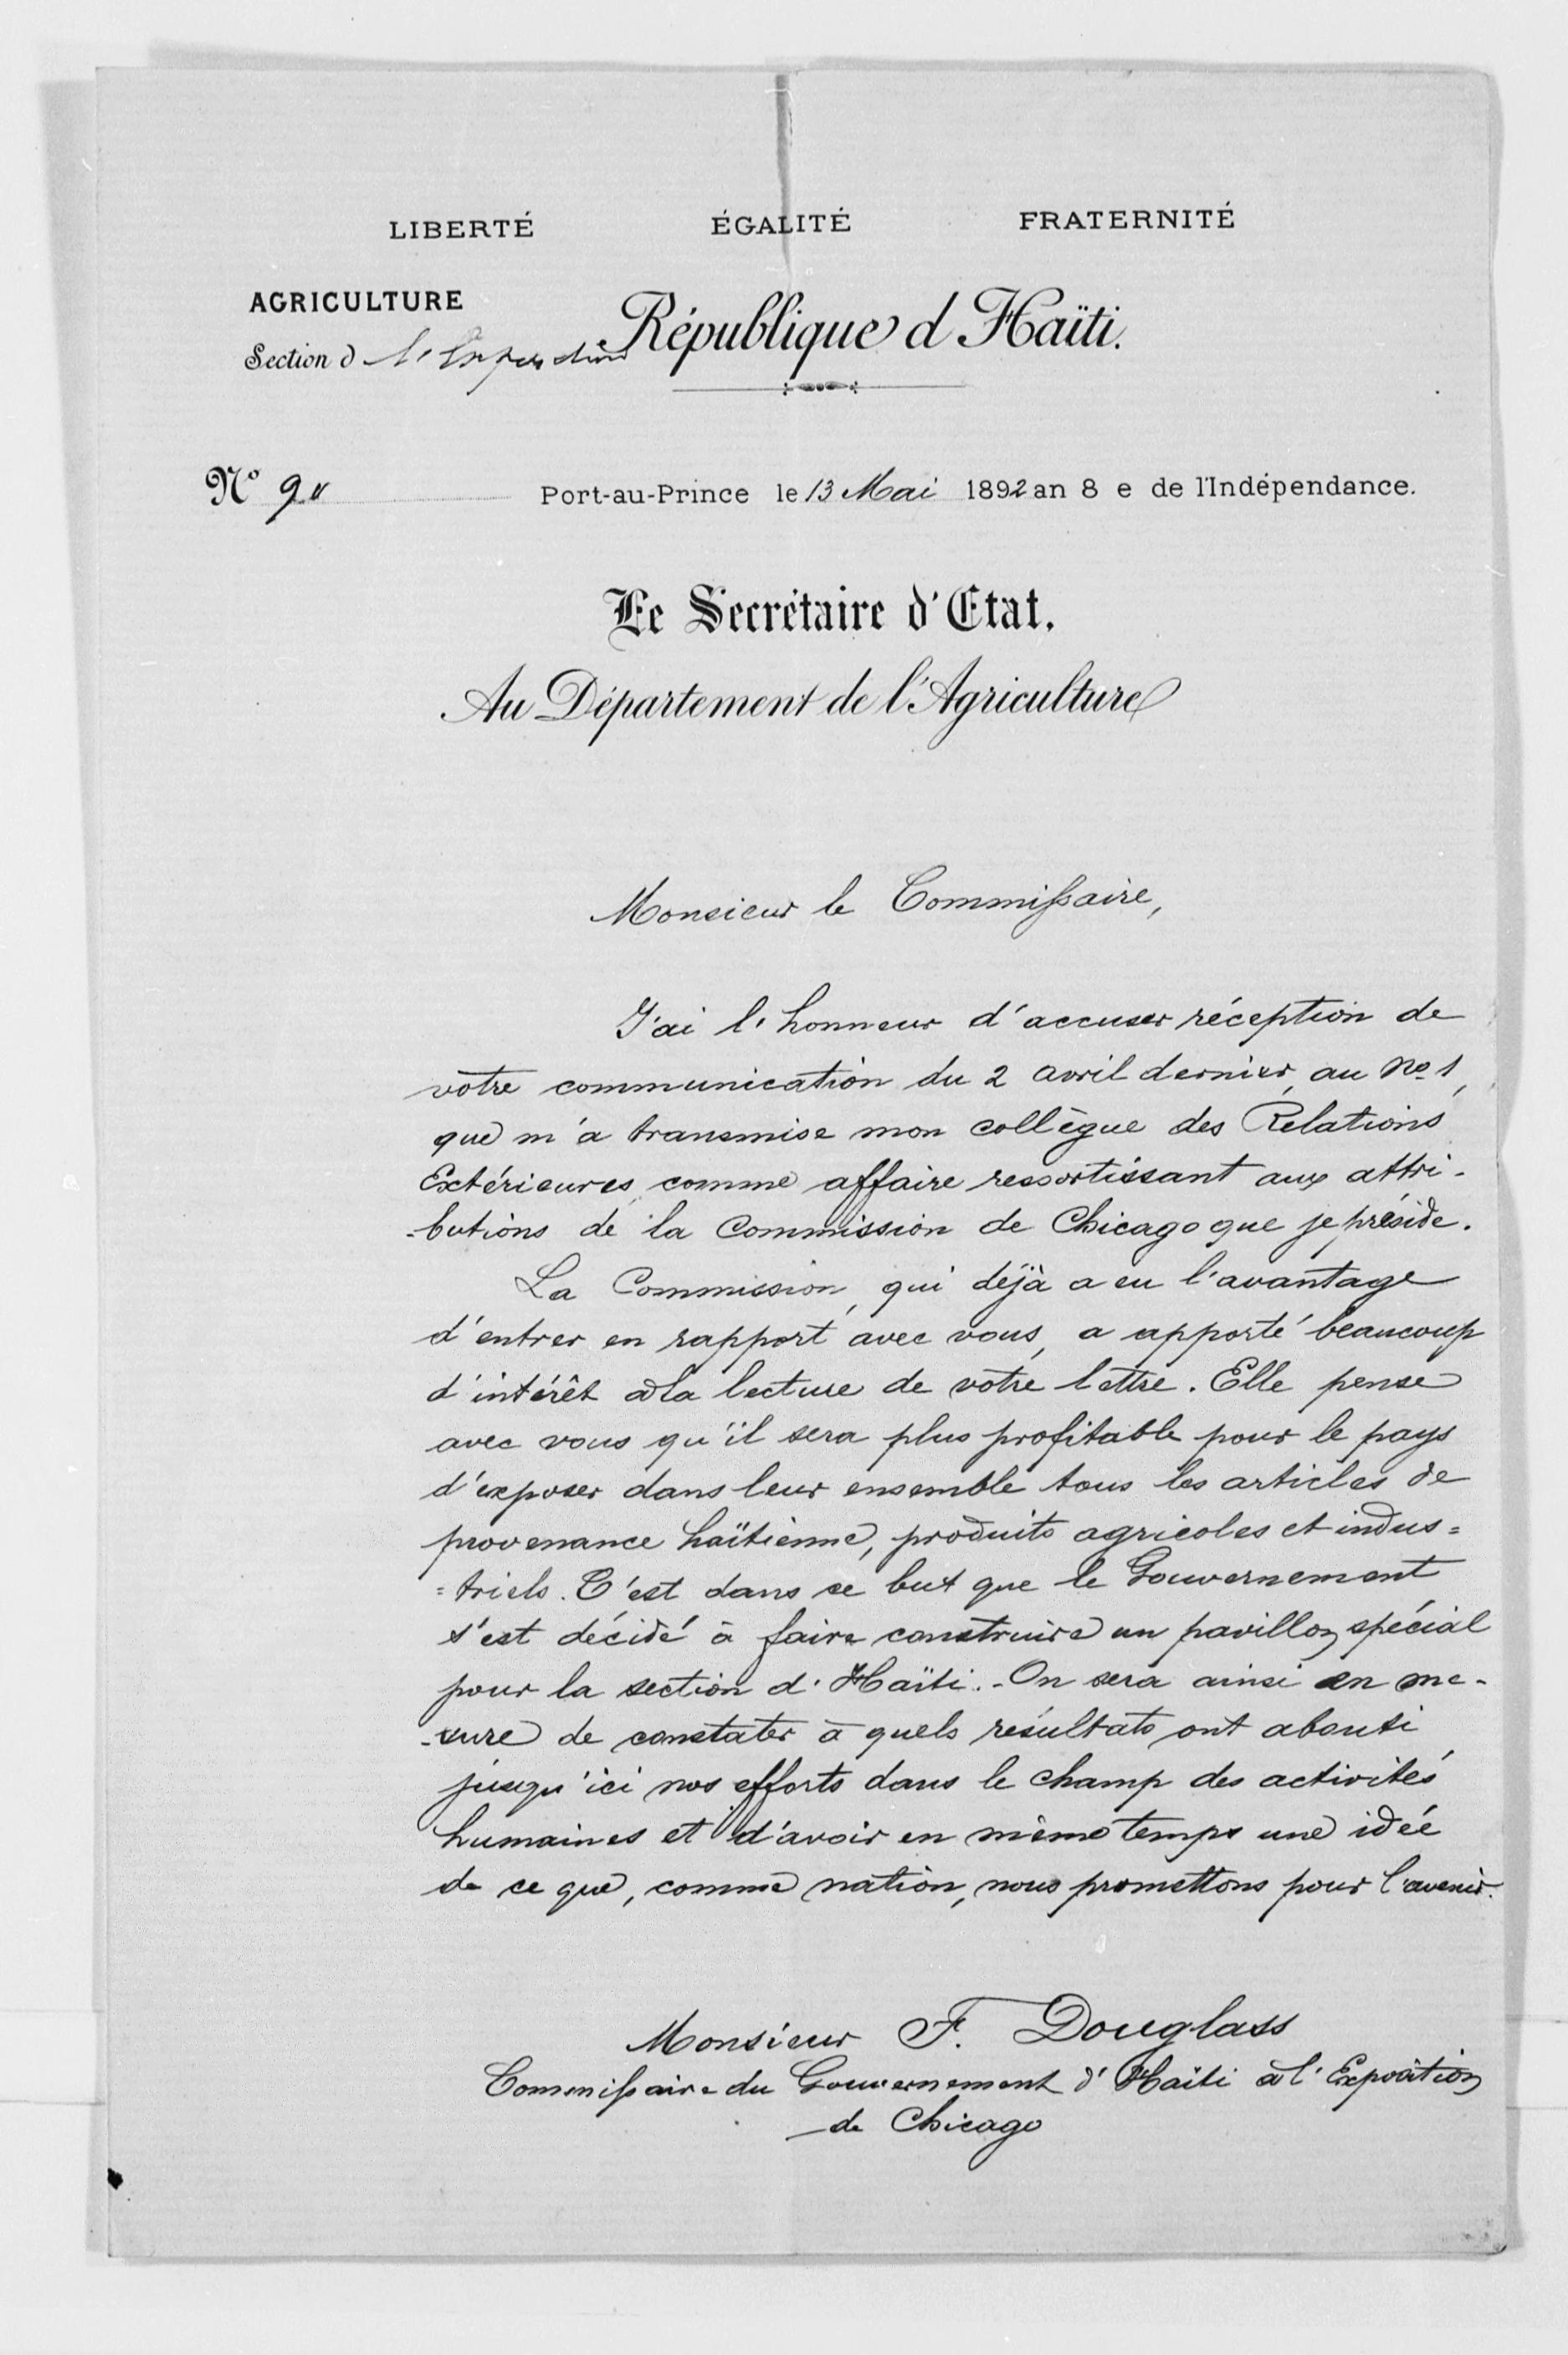 LIBERTÉ ÉGALITÉ FRATERNITÉ
AGRICULTURE
République d Haïti.
Section d
Nº 9
Port-au-Prince le 13 Mai 1892 an 8 e de l'Indépendance.
Le Secrétaire d'Etat.
Au Département de l'Agriculture
Monsieur le Commissaire,
J'ai l'honneur d'accuser réception de
votre communication du 2 avril dernier, au No 1,
que m'a transmise mon collègue des Relations
Extérieures comme affaire ressortissant aux attri-
-butions de la Commission de Chicago que je préside.
La Commission, qui déjà a eu l'avantage
d'entrer en rapport avec vous, a apporté beaucoup
d'intérêt à la lecture de votre lettre. Elle pense
avec vous qu'il sera plus profitable pour le pays
d'exposer dans leur ensemble tous les articles de
provenance haïtienne, produits agricoles et indus=
=triels. C'est dans ce but que le Gouvernement
s'est décidé à faire construire un pavillon spécial
pour la section d'Haïti. - On sera ainsi en me-
-sure de constater à quels résultats ont abouti
jusqu'ici nos efforts dans le champ des activités
humaines et d'avoir en même temps une idée
de ce que, comme nation, nous promettons pour l'avenir.
Monsieur F. Douglass
Commissaire du Gouvernement d'Haïti à l'Exposition
de Chicago